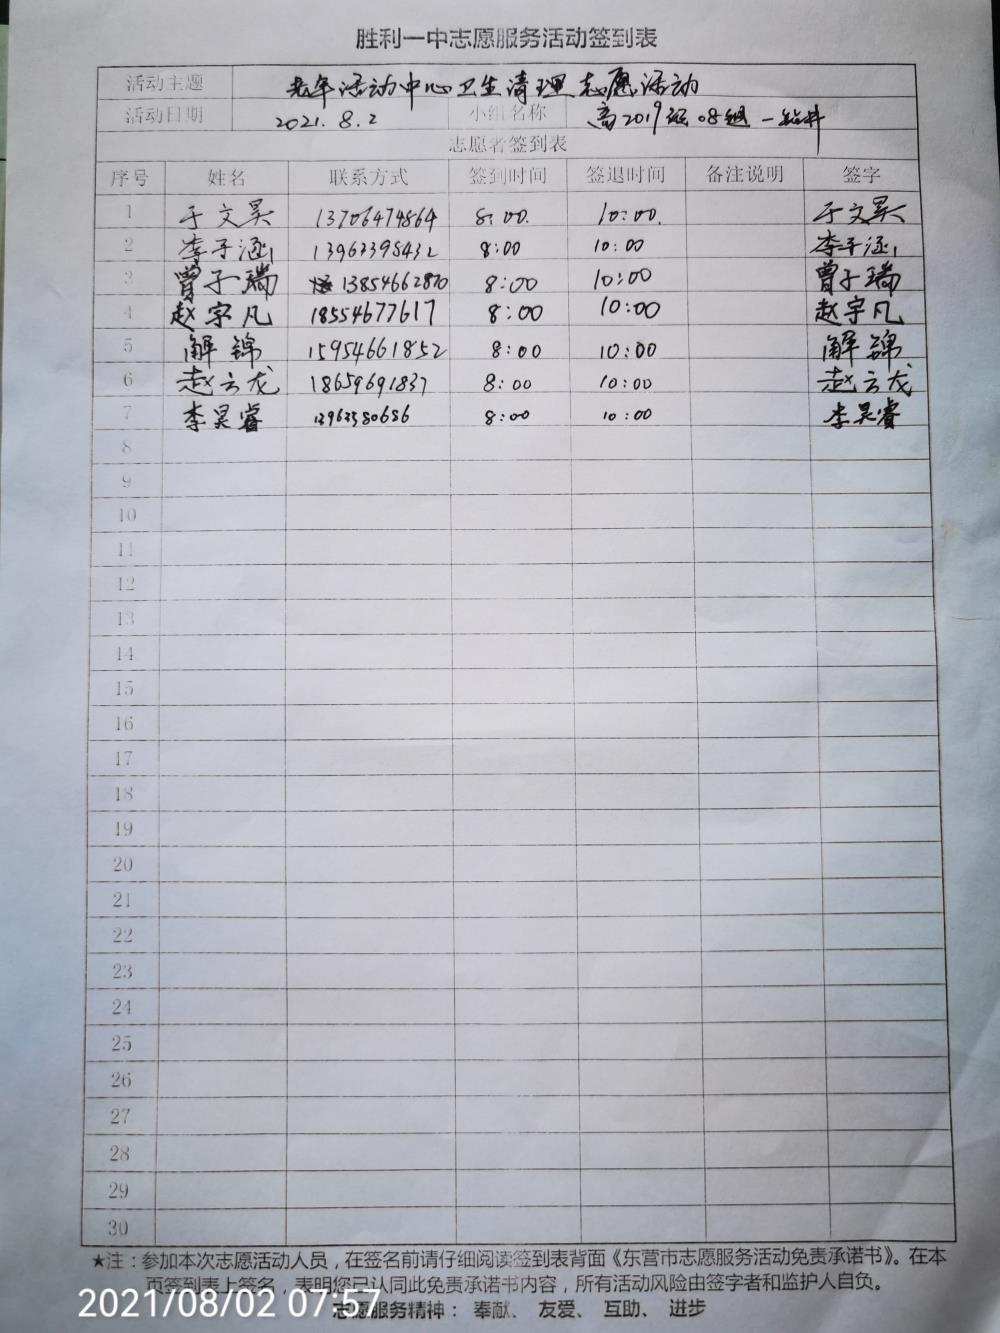 胜利一中志愿服务活动签到表
活动主题 老年活动中心卫生清理志愿活动
活动日期 2021.8.2 小组名称 高2019级08组一钻井
志愿者签到表
序号 姓名 联系方式 签到时间 签退时间 备注说明 签字
1 于文昊 13706474864 8:00. 10:00. 于文昊
2 李子涵 13963395432 8:00 10:00 李子涵
3 曾子瑞 13854662870 8:00 10:00 曾子瑞
4 赵宇凡 18554677617 8:00 10:00 赵宇凡
5 解锦 15954661852 8:00 10:00 解锦
6 赵云龙 18659691837 8:00 10:00 赵云龙
7 李昊睿 8:00 10:00 李昊睿
8
9
10
11
12
13
14
15
16
17
18
19
20
21
22
23
24
25
26
27
28
29
30
★注：参加本次志愿活动人员，在签名前请仔细阅读签到表背面《东营市志愿服务活动免责承诺书》。在本
页签到表上签名，表明您已认同此免责承诺书内容，所有活动风险由签字者和监护人自负。
志愿服务精神： 奉献、 友爱、 互助、 进步
2021/08/02 07:57